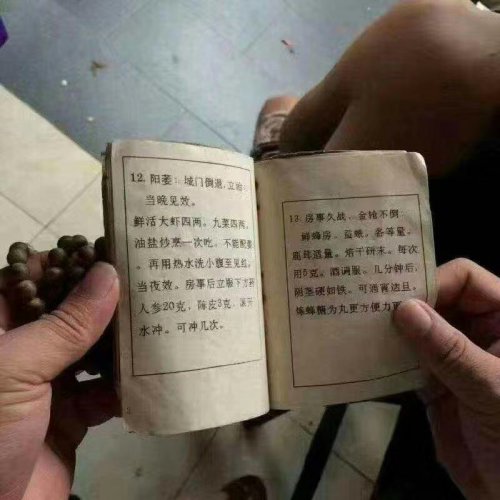 12. 阳萎：城门倒退，立治
当晚见效。
鲜活大虾四两。九菜四两。
油盐炒烹一次吃，不能配餐
。再用热水洗小腹至见红。
当夜效。房事后立服下方药
人参20克，陈皮3克，滚开
水冲。可冲几次。
13. 房事久战，金枪不倒：
鲜蜂房、蛇蜕。各等量。
鹿茸适量。焙干研末。每次
用5克。酒调服。几分钟后，
阴茎硬如铁。可通宵达旦。
炼蜂蜜为丸更方便力更